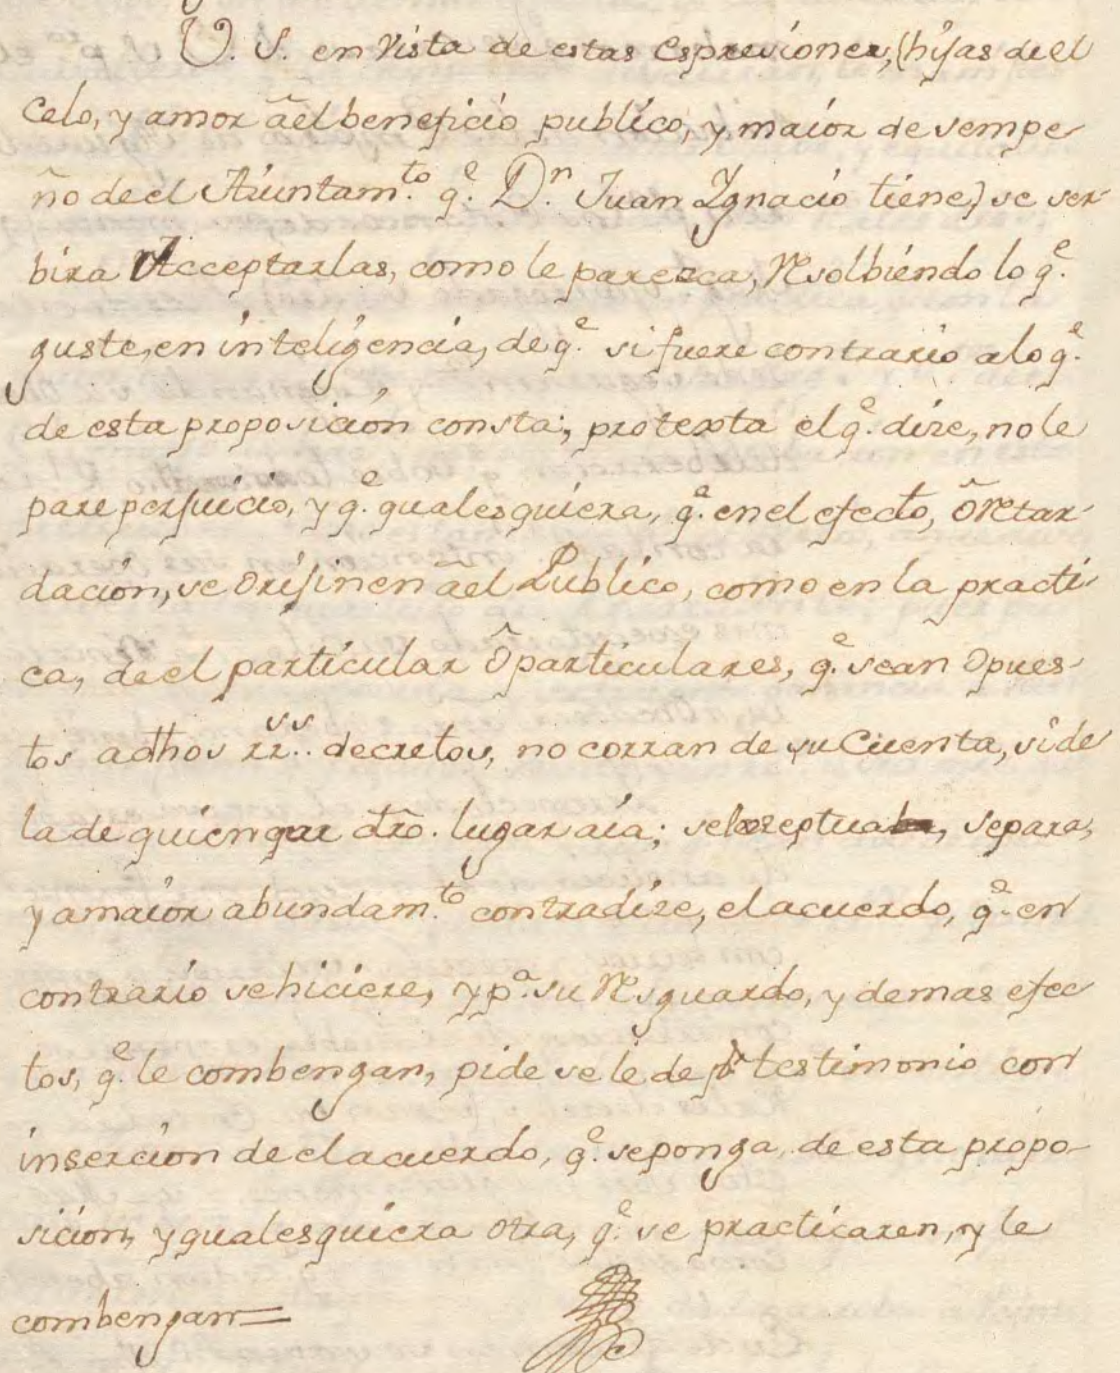 V. S. en Vista de estas Espresiones, (hijas de el
Celo, y amor âel beneficio publico, y maior desempe
ño de el Aiuntam.to q.e D.n Juan Ygnacio tiene) se ser
bira Acceptarlas, como le paresca, Resolbiendo lo q.e
guste, en inteligencia, de q.e si fuere contrario a lo q.e
de esta proposicion consta; protexta el q.e dize, no le
pare perjuicio, y q.e quales quiera, q.e en el efecto, ô Retar
dacion, se Orijinen âel Publico, como en la practi
ca, de el particular ô particulares, q.e sean Opues
tos adhos rr.ss decretos, no corran de su Cuenta, si de
la de quien que dro. lugar aia; se separa,
y a maior abundam.to contradize, el acuerdo, q.e en
contrario se hiciere, y p.a su Resguardo, y demas efec
tos, q.e le combengan, pide se le de testimonio con
insercion de el acuerdo, q.e se ponga, de esta propo
sicion, y quales quiera otra, q.e se practicaren, y le
combengan=